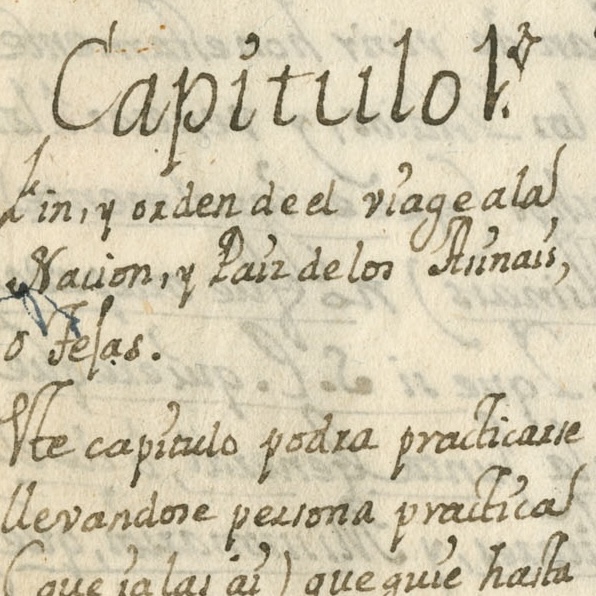 Capitulo 1.º
Fin, y orden de el viage a la
Nacion, y Paiz de los Aünais,
o Texas.
Este capitulo podra practicarse
llevandose persona practica
(que ia las ai) que guie hasta